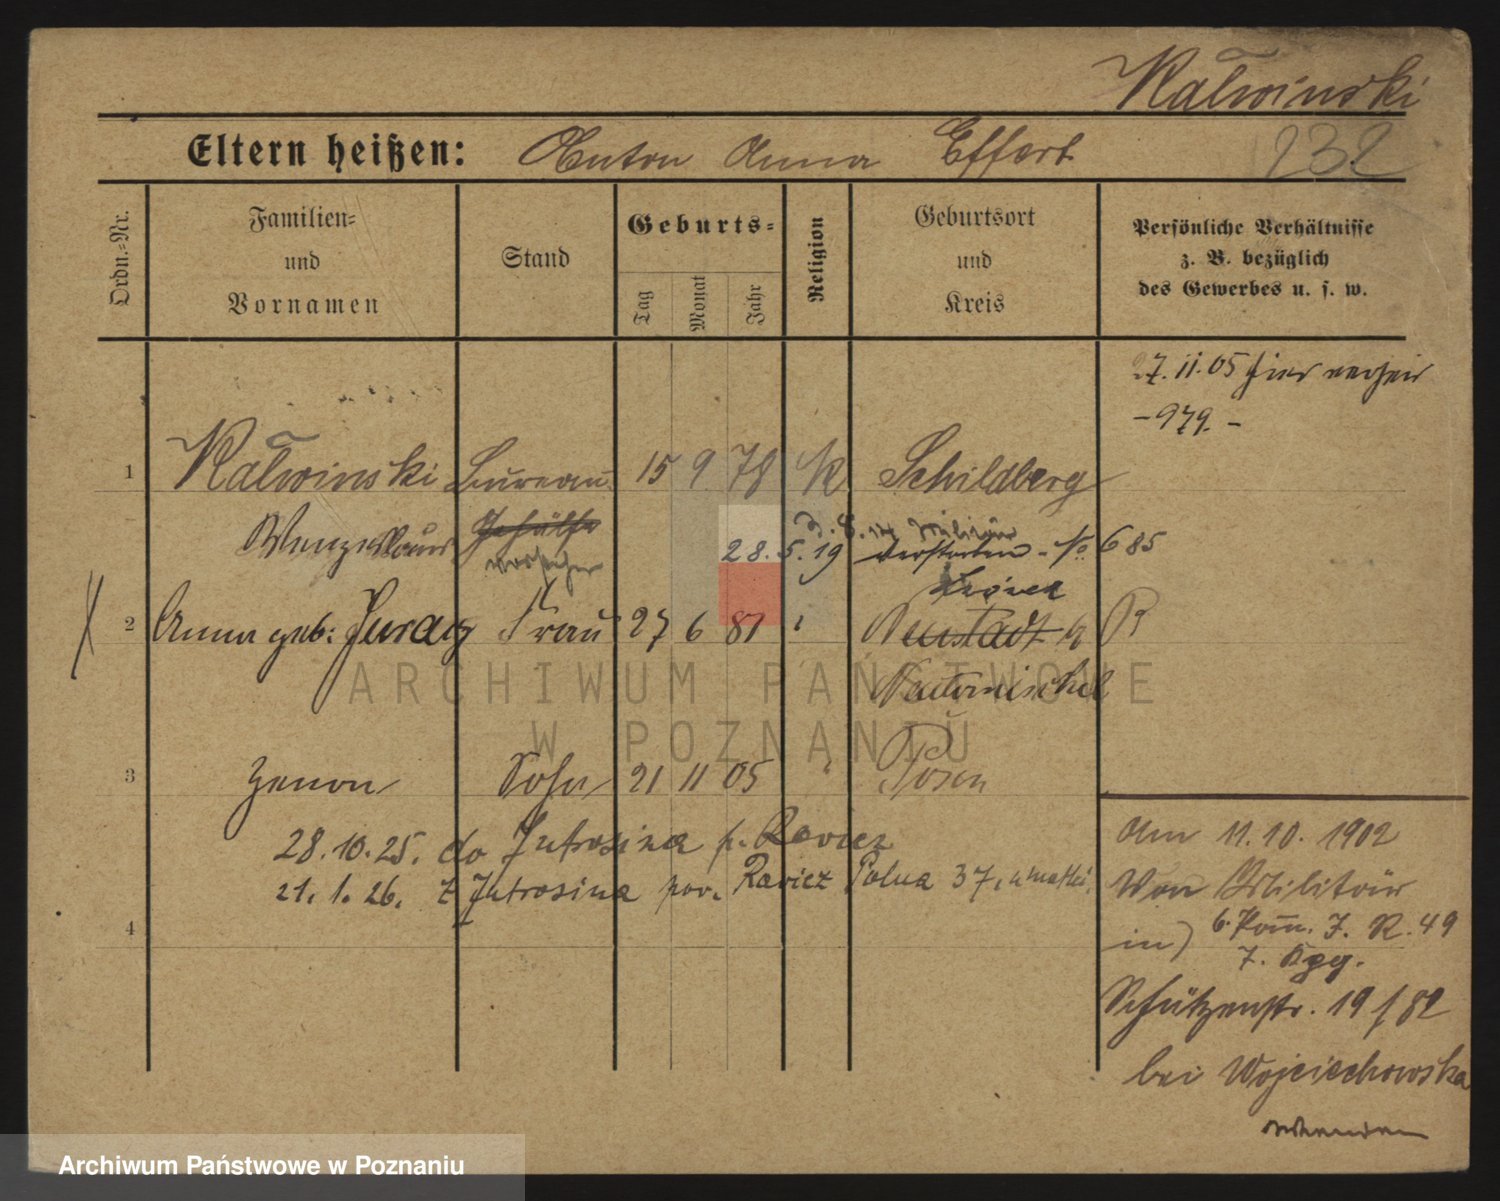 Kalwinski
Eltern heißen: Anton Anna Effert
232
Ordn.-Nr.
Familien- und Vornamen
Stand
Geburts-
Tag
Monat
Jahr
Religion
Geburtsort und Kreis
Persönliche Verhältnisse z. B. bezüglich des Gewerbes u. s. w.
27.11.05 hier verheir
- 979. -
1 Kalwinski Bureau 15 9 78 K Schildberg
Wenzeslaus Gehülfe
28.5.19 verstorben - No 685
2 Anna geb: Frau 27 6 81 "
Neustadt
Neutomischel
3 Zenon Sohn 21 11 05 " Posen
28.10.25. do Jutrosina p. Rawicz
21.1.26. z Jutrosina pow. Rawicz Polna 37, u matki.
4
Am 11.10.1902
Von Militär
in) 6. Pom. J. R. 49
7. Kpg.
Schützenstr. 19 / 82
bei Wojciechowska
wenden
ARCHIWUM PAŃSTWOWE
W POZNANIU
Archiwum Państwowe w Poznaniu